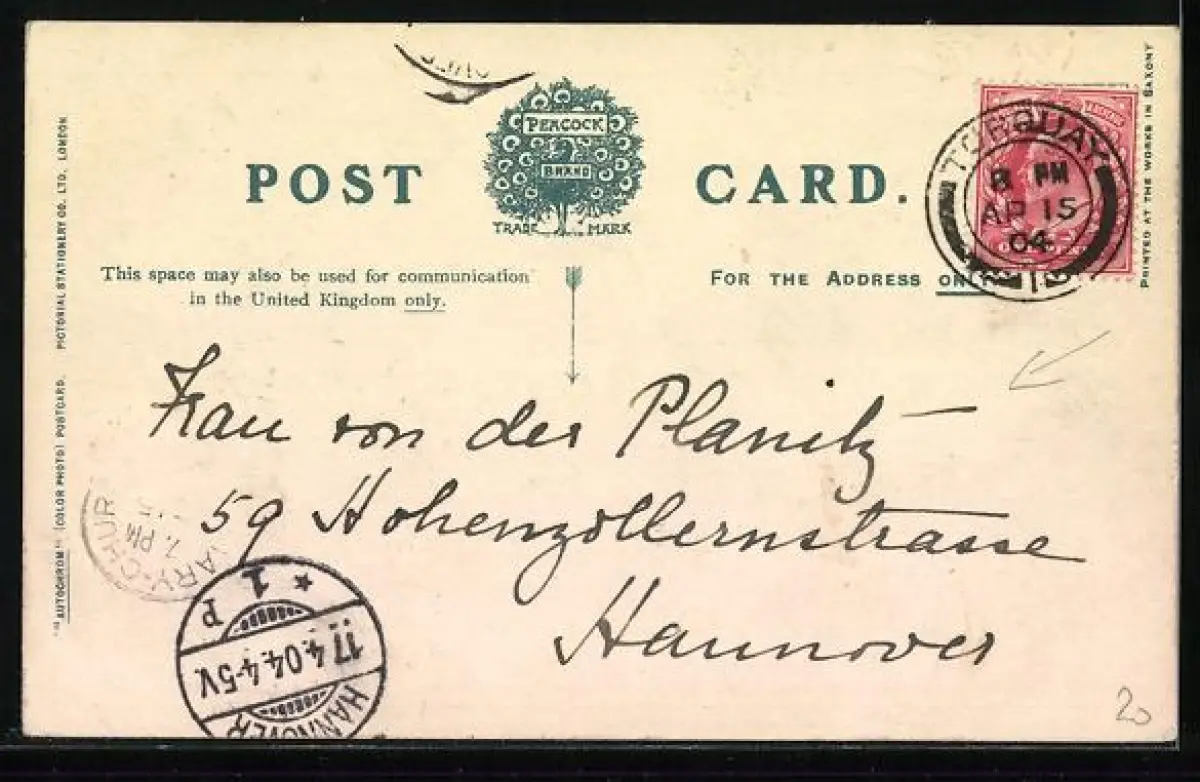 PEACOCK
BRAND
TRADE MARK
POST CARD.
This space may also be used for communication
in the United Kingdom only.
FOR THE ADDRESS ONLY
TORQUAY
8 PM
AP 15
04
Frau von der Planitz
59 Hohenzollernstrasse
Hannover
ARY-CHUR
7. PM
15
* 1 P
17.4.04.4-5V.
HANNOVER
20
"AUTOCHROM" (COLOR PHOTO) POSTCARD. PICTORIAL STATIONERY CO. LTD. LONDON
PRINTED AT THE WORKS IN SAXONY